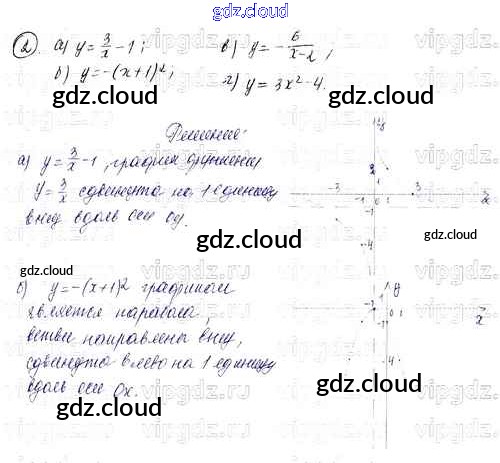 gdz.cloud
② а) y = 3/x - 1; в) y = - 6/(x-2);
б) y = -(x+1)²; г) y = 3x² - 4.
gdz.cloud
gdz.cloud
Решение:
а) y = 3/x - 1, график функции
y = 3/x сдвинута на 1 единицу
вниз вдоль оси oy.
gdz.cloud
gdz.cloud
y
2
1
-3 -1 0 1 3 x
-1
-4
gdz.cloud
б) y = -(x+1)² графиком
является парабола,
ветви направлены вниз,
сдвинута влево на 1 единицу
вдоль оси Ox.
gdz.cloud
gdz.cloud
y
1
-2 0 1 x
-1
-4
gdz.cloud
gdz.cloud